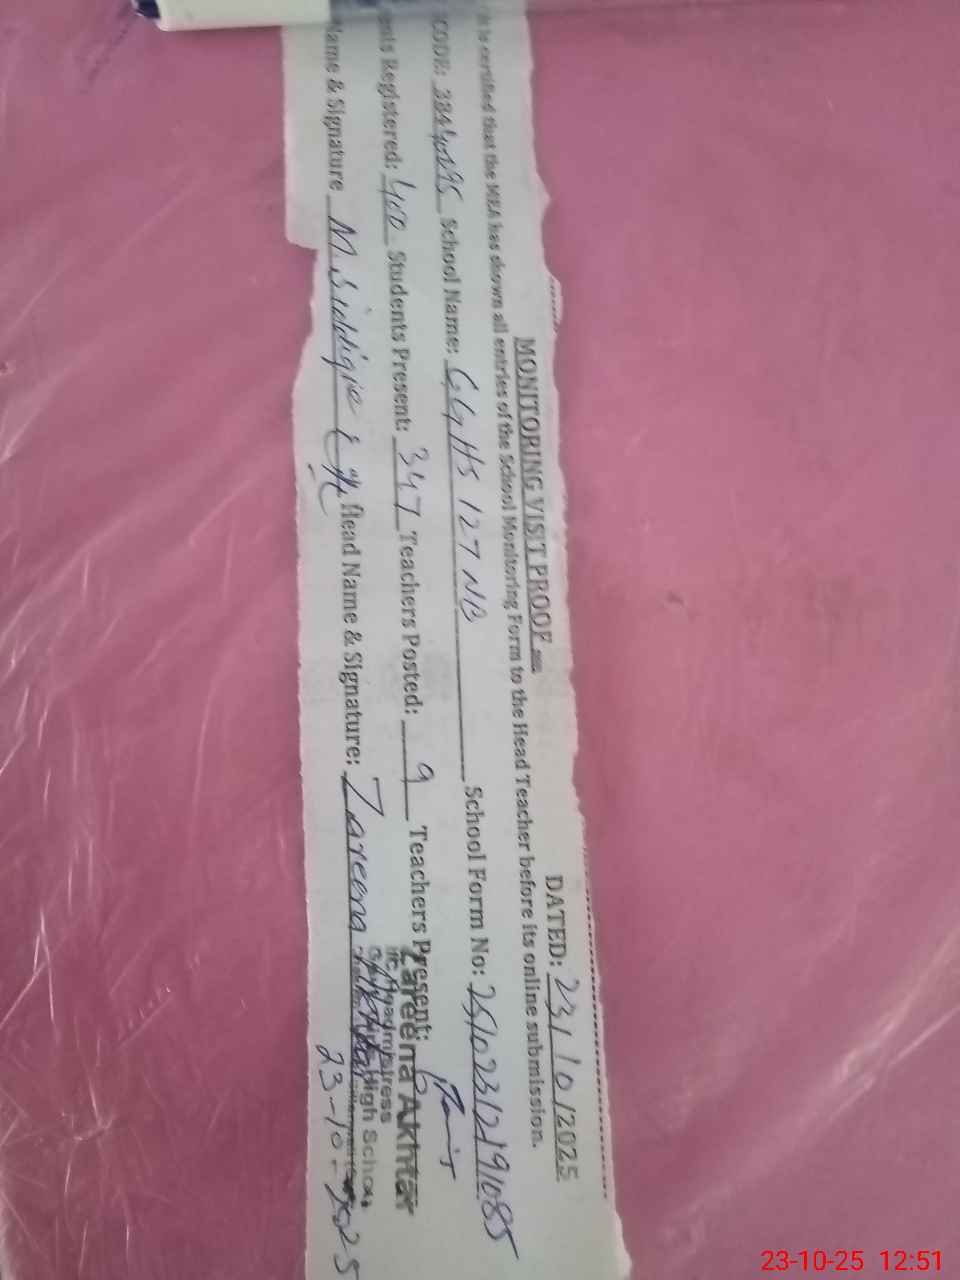 MONITORING VISIT PROOF DATED: 23/10/2025
is certified that the MEA has shown all entries of the School Monitoring Form to the Head Teacher before its online submission.
CODE: School Name: GGHS 127 NB School Form No: 25102312191085
ents Registered: 400 Students Present: 347 Teachers Posted: 9 Teachers Present: 6
Name & Signature M. Siddique Head Name & Signature: Zareena Akhtar
Zareena Akhtar
I/C Headmistress
High School
23-10-2025
23-10-25 12:51